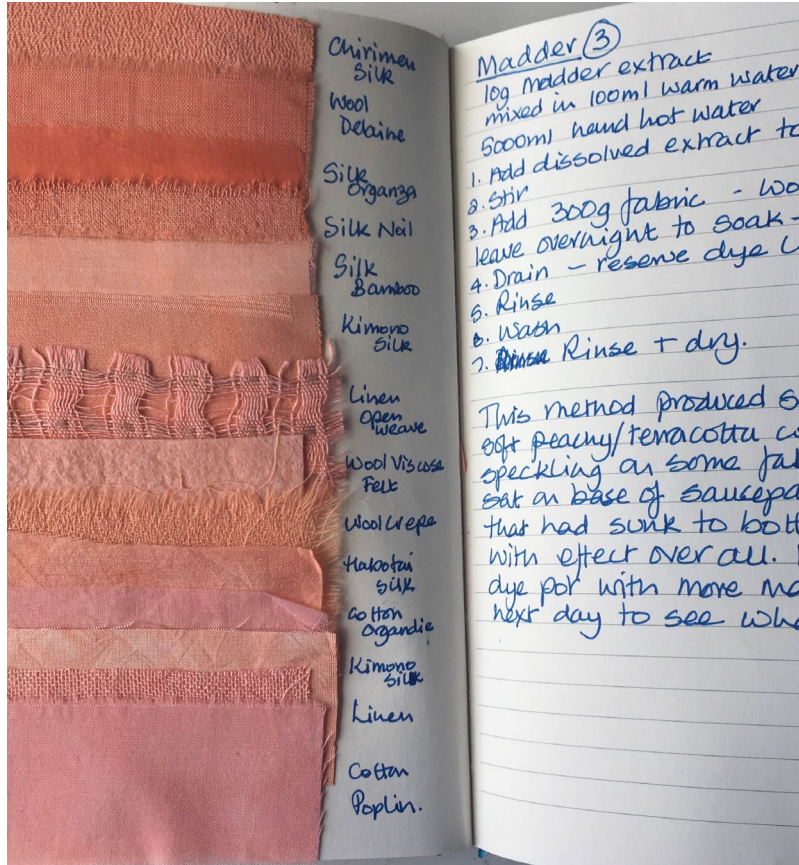 Chirimen
Silk
Wool
Delaine
Silk
Organza
Silk Noil
Silk
Bamboo
Kimono
Silk
Linen
Open
weave
Wool Viscose
Felt
Wool crepe
Habotai
Silk
Cotton
Organdie
Kimono
Silk
Linen
Cotton
Poplin.
Madder 3
10g madder extract
mixed in 100ml warm water
5000ml hand hot water
1. Add dissolved extract to
2. Stir
3. Add 300g fabric - wo
leave overnight to soak -
4. Drain - reserve dye
5. Rinse
6. Wash
7. Rinse + dry.
This method produced s
soft peachy/terracotta co
speckling on some fab
sat on base of saucepa
that had sunk to bott
with effect over all.
dye pot with more ma
next day to see wha